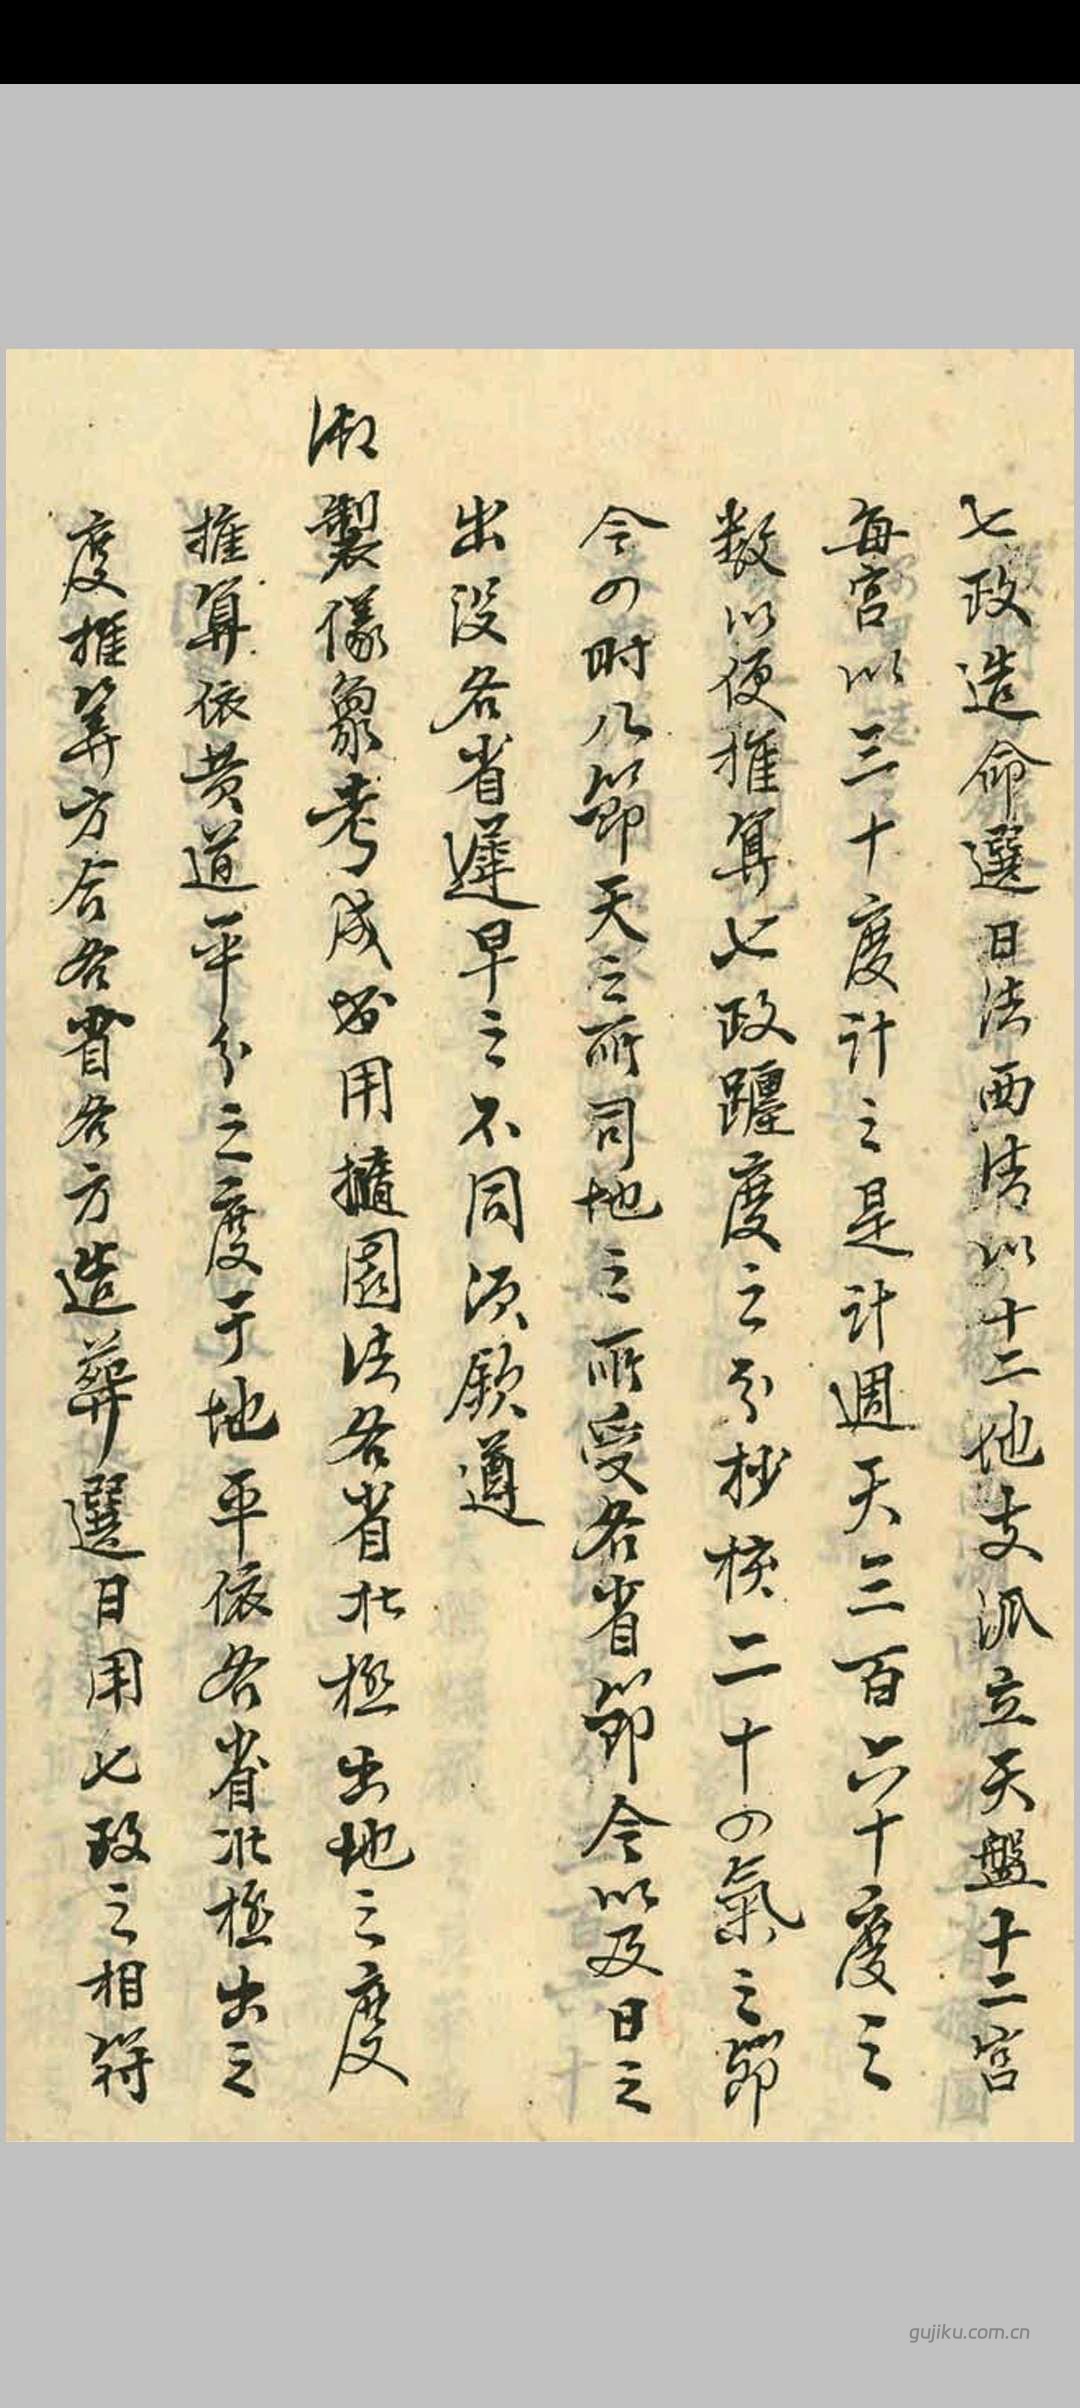 七政造命選日法西法以十二地支派立天盤十二宮
每宮以三十度計之是計週天三百六十度之
数以便推算七政躔度之分杪核二十四氣之節
令四時八節天之所司地之所受各省節令以及日之
出没各省遲早之不同須欽遵
御製儀象考成必用橢圓法各省北極出地之度
推算依黄道平分之度于地平依各省北極出之
度推算方合各省各方造葬選日用七政之相符
gujiku.com.cn